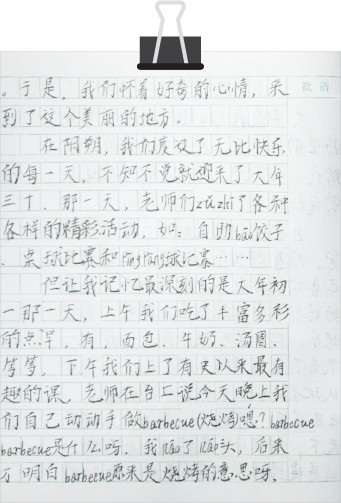 。于是，我们怀着好奇的心情，来
到了这个美丽的地方。
在阳朔，我们度过了无比快乐
的每一天，不知不觉就迎来了大年
三十。那一天，老师们zǔzhī了各种
各样的精彩活动，如：自助bāo饺子
、桌球比赛和pīngpāng球比赛……
但让我记忆最深刻的是大年初
一那一天，上午我们吃了丰富多彩
的点心，有，面包、牛奶、汤圆、
等等，下午我们上了有史以来最有
趣的课，老师在台上说今天晚上我
们自己动动手做barbecue(烧烤)嗯？barbecue
barbecue是什么呀，我náo了náo头，后来
才明白barbecue原来是烧烤的意思呀。